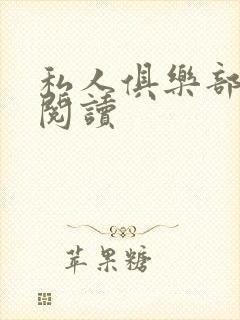 私人俱樂部
閱讀
苹果糖